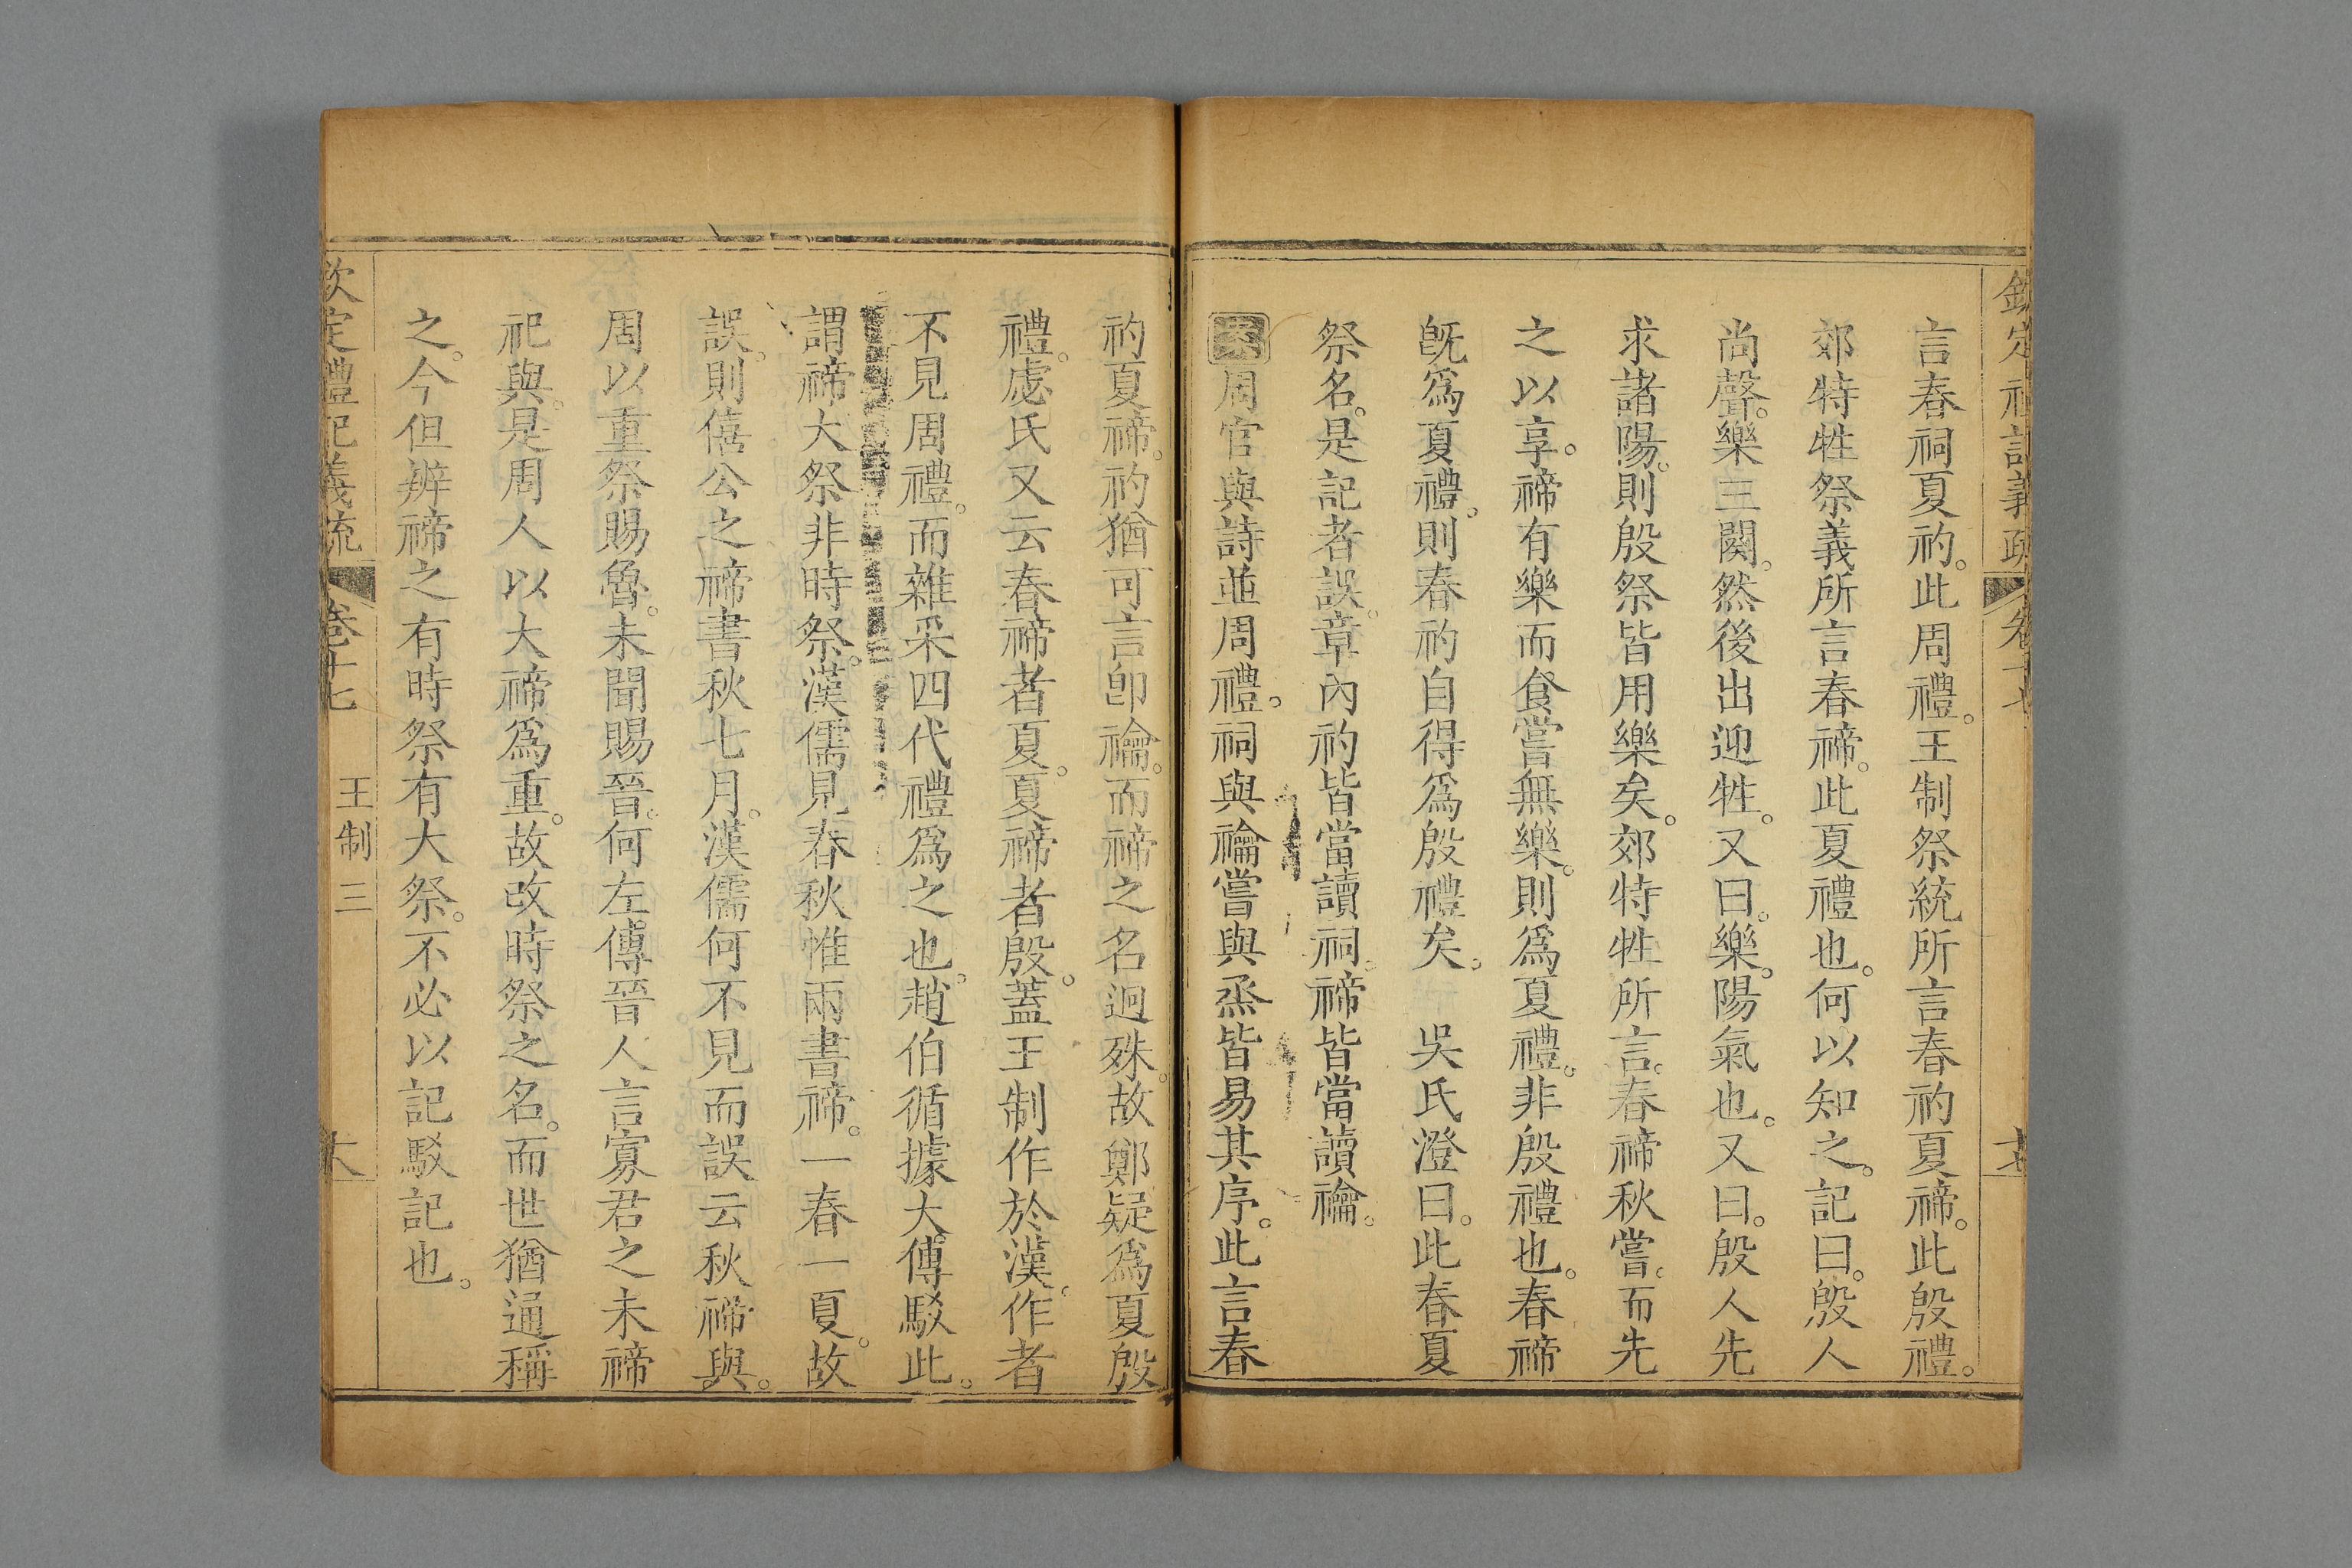 欽定禮記義疏 卷十七 十七
言春祠夏礿。此周禮。王制祭統所言春礿夏禘。此殷禮。
郊特牲祭義所言春禘。此夏禮也。何以知之。記曰。殷人
尚聲。樂三闋。然後出迎牲。又曰。樂。陽氣也。又曰。殷人先
求諸陽。則殷祭皆用樂矣。郊特牲所言。春禘秋嘗。而先
之以享。禘有樂而食嘗無樂。則爲夏禮。非殷禮也。春禘
旣爲夏禮。則春礿自得爲殷禮矣。 吳氏澄曰。此春夏
祭名。是記者誤。章內礿皆當讀祠。禘皆當讀禴。
案周官與詩並周禮。祠與禴嘗與烝皆易其序。此言春
礿夏禘。礿猶可言卽禴。而禘之名迥殊。故鄭疑爲夏殷
禮。處氏又云春禘者夏。夏禘者殷。蓋王制作於漢。作者
不見周禮。而雜采四代禮爲之也。趙伯循據大傳駁此。
謂禘大祭非時祭。漢儒見春秋惟兩書禘。一春一夏。故
誤。則僖公之禘書秋七月。漢儒何不見而誤云秋禘與。
周以重祭賜魯。未聞賜晉。何左傳晉人言寡君之未禘
祀與。是周人以大禘爲重。故改時祭之名。而世猶通稱
之。今但辨禘之有時祭有大祭。不必以記駁記也。
欽定禮記義疏 卷十七 王制三 十八